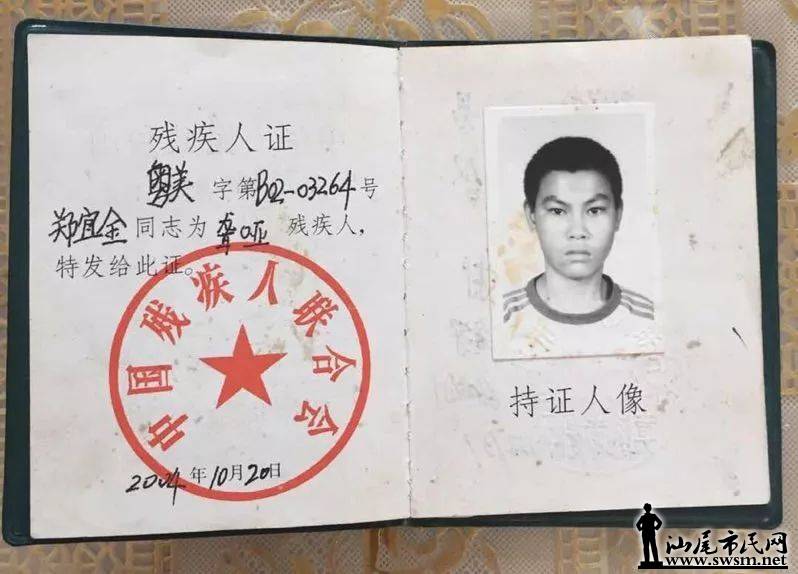 残疾人证
粤美字第B02-03264号
郑宜金同志为聋哑残疾人，
特发给此证。
中国残疾人联合会
2004年10月20日
持证人像
汕尾市民网
www.swsm.net